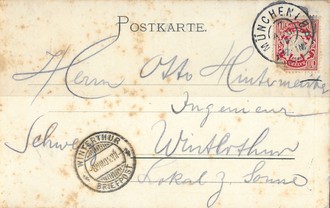 POSTKARTE.
MÜNCHEN
Herrn Otto Hintermeister
Ingenieur
Schweiz Winterthur
WINTERTHUR
BRIEFPOST
Lokal z. Sonne